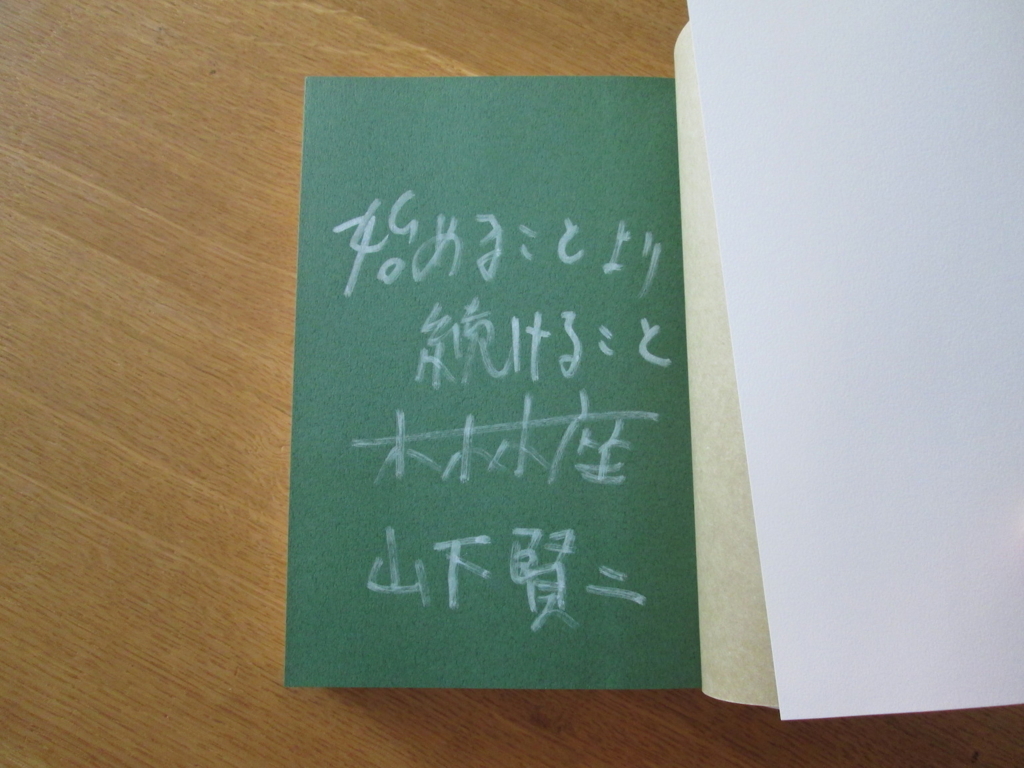 始めることより
続けること
ホホホ座
山下賢二